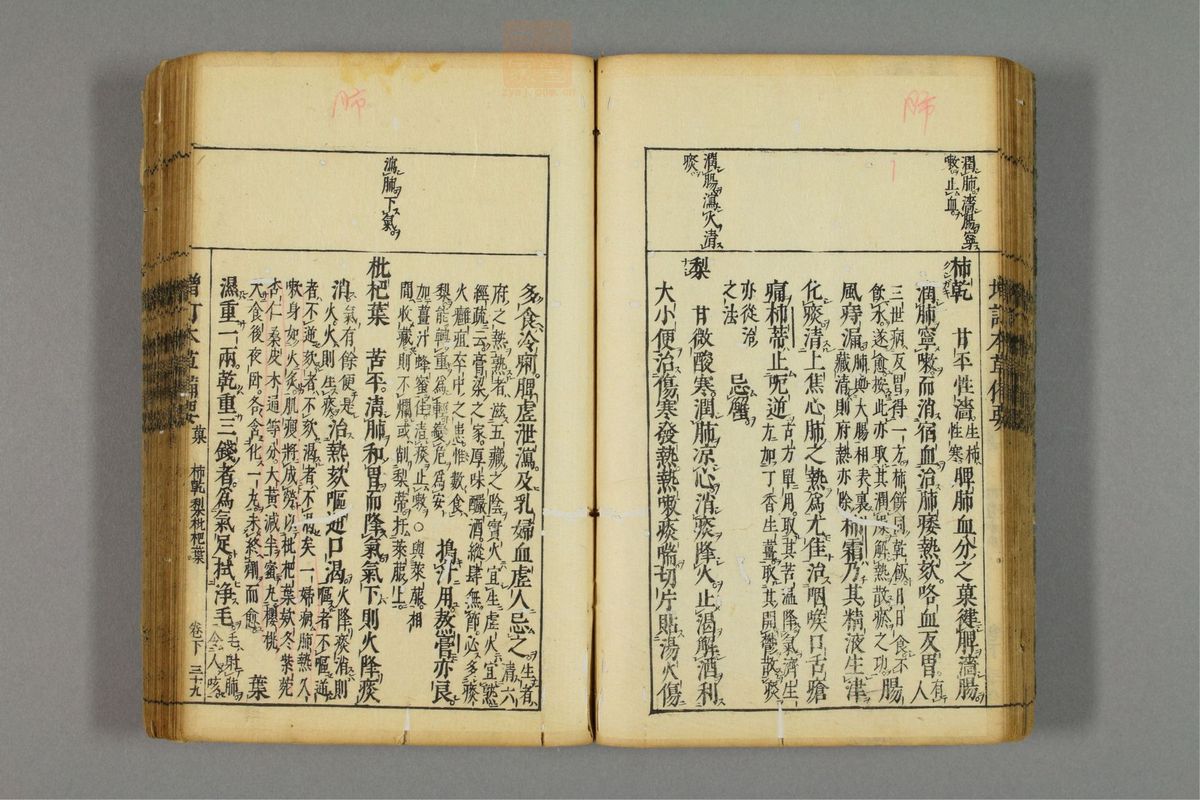 肺
潤肺濇腸寧
嗽止血
潤腸瀉火清
痰
柿乾 甘平性濇 生柿性寒 脾肺血分之菓健脾濇腸
潤肺寧嗽而消宿血治肺痿熱欬咯血反胃 有人
三世病反胃得一方柿餅同乾飯日日食不
飲水遂愈按此亦取其潤燥解熱散瘀之功 腸
風痔漏 肺與大腸相表裏臟清則府熱亦除 柿霜乃其精液生津
化痰清上焦心肺之熱爲尤佳治咽喉口舌瘡
痛柿蒂止呃逆 古方單用取其苦温降氣濟生方加丁香生薑取其開鬱散痰
亦從治
之法 忌蟹
梨 甘微酸寒潤肺凉心消痰降火止渇解酒利
大小便治傷寒發熱熱嗽痰喘切片貼湯火傷
肺
瀉肺下氣
多食冷痢脾虚泄瀉及乳婦血虚人忌之 生者清六
府之熱熟者滋五臓之陰實火宜生虚火宜熟
經疏云膏粱之家厚味醲酒縱肆無節必多痰
火癰疽卒中之患惟數食
梨能轉重爲輕變危爲安 搗汁用熬膏亦良
加薑汁蜂蜜佳清痰止嗽○與萊菔相
間收藏則不爛或削梨蒂扦萊菔上
枇杷葉 苦平清肺和胃而降氣氣下則火降痰
消 氣有餘便是火火則生痰 治熱欬嘔逆口渇 火降痰消則嘔
者不嘔逆者不逆欬者不欬渇者不渇矣一婦病肺熱久
嗽身如火炙肌瘦將成勞以枇杷葉欸冬紫菀
杏仁桑皮木通等分大黄減半蜜丸櫻桃
大食後夜卧各含化一丸未終劑而愈 葉
濕重一兩乾重三錢者爲氣足拭净毛 毛射肺令人咳
増訂本草備要 菓 柿乾 梨 枇杷葉 卷下 三十九